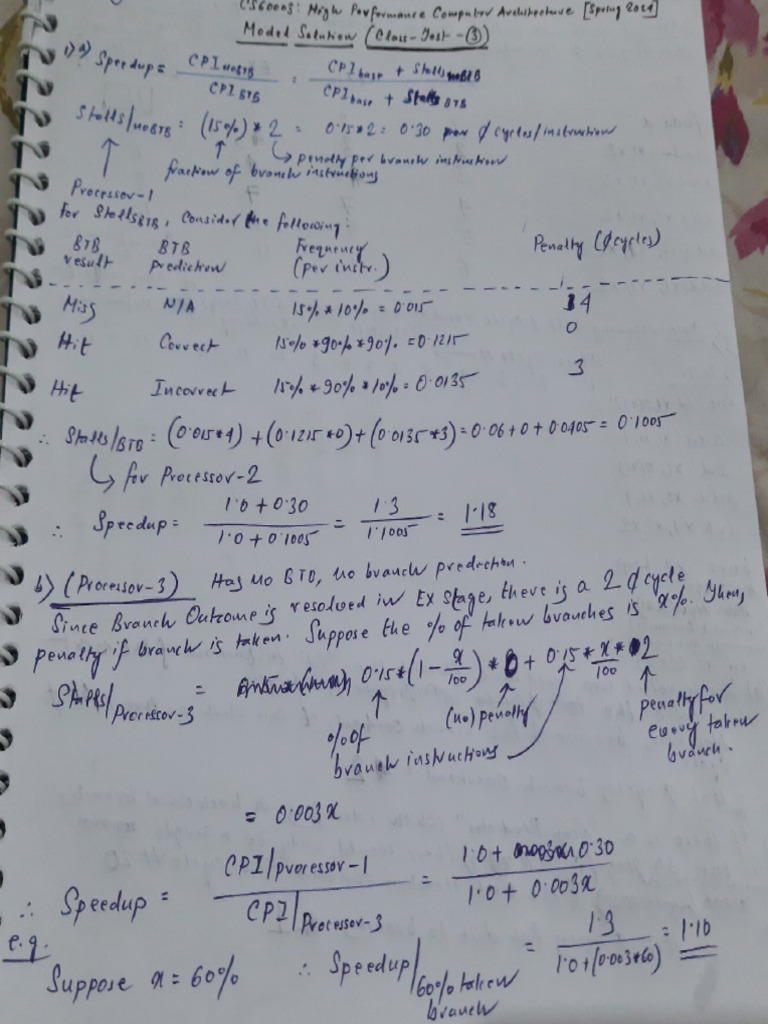 CS60003: High Performance Computer Architecture [Spring 2021]
Model Solution (Class-Test-③)
1) a) Speedup = CPI noBTB / CPI BTB = CPI base + Stalls noBTB / CPI base + Stalls BTB
Stalls/noBTB = (15%) * 2 = 0.15*2 = 0.30 per ¢ cycles/instruction
fraction of branch instructions penalty per branch instruction
Processor-1
For Stalls BTB, consider the following:
BTB result BTB prediction Frequency (per instr.) Penalty (¢ cycles)
Miss N/A 15% * 10% = 0.015 4
Hit Correct 15% * 90% * 90% = 0.1215 0
Hit Incorrect 15% * 90% * 10% = 0.0135 3
∴ Stalls/BTB = (0.015*4) + (0.1215*0) + (0.0135*3) = 0.06 + 0 + 0.0405 = 0.1005
for Processor-2
∴ Speedup = 1.0 + 0.30 / 1.0 + 0.1005 = 1.3 / 1.1005 = 1.18
b) (Processor-3) Has no BTB, no branch prediction.
Since Branch Outcome is resolved in EX stage, there is a 2 ¢ cycle
penalty if branch is taken. Suppose the % of taken branches is x%. Then,
Stalls/Processor-3 = 0.15 * (1 - x/100) * 0 + 0.15 * x/100 * 2
% of branch instructions (no) penalty penalty for every taken branch.
= 0.003x
∴ Speedup = CPI|processor-1 / CPI|Processor-3 = 1.0 + 0.30 / 1.0 + 0.003x
e.g. Suppose x = 60% ∴ Speedup/60% taken branch = 1.3 / 1.0 + (0.003*60) = 1.10